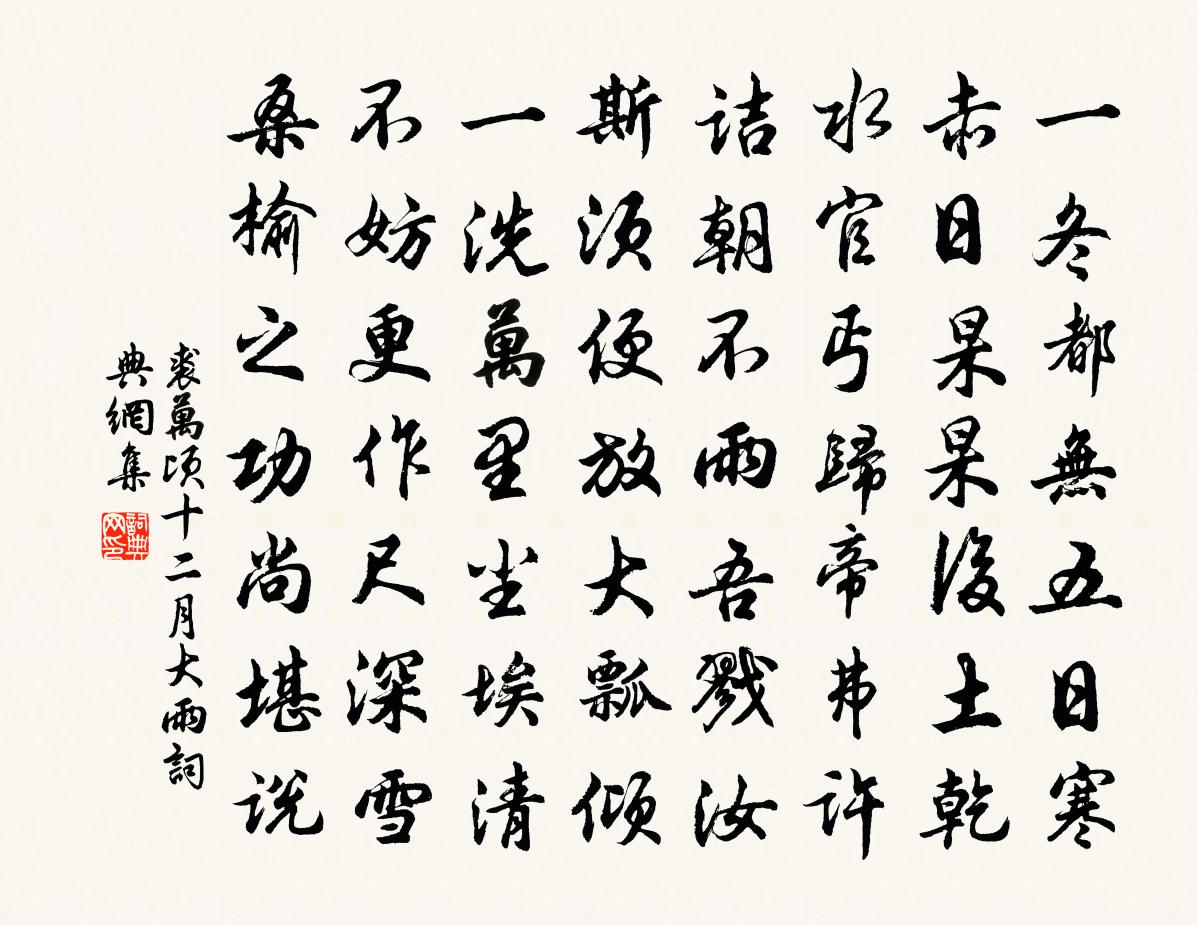 一冬都無五日寒
赤日杲杲後土乾
水官丐歸帝弗許
詰朝不雨吾戮汝
斯須便放大瓢傾
一洗萬里尘埃清
不妨更作尺深雪
桑榆之功尚堪说
裘萬頃十二月大雨詞
典網集
詞典
网印